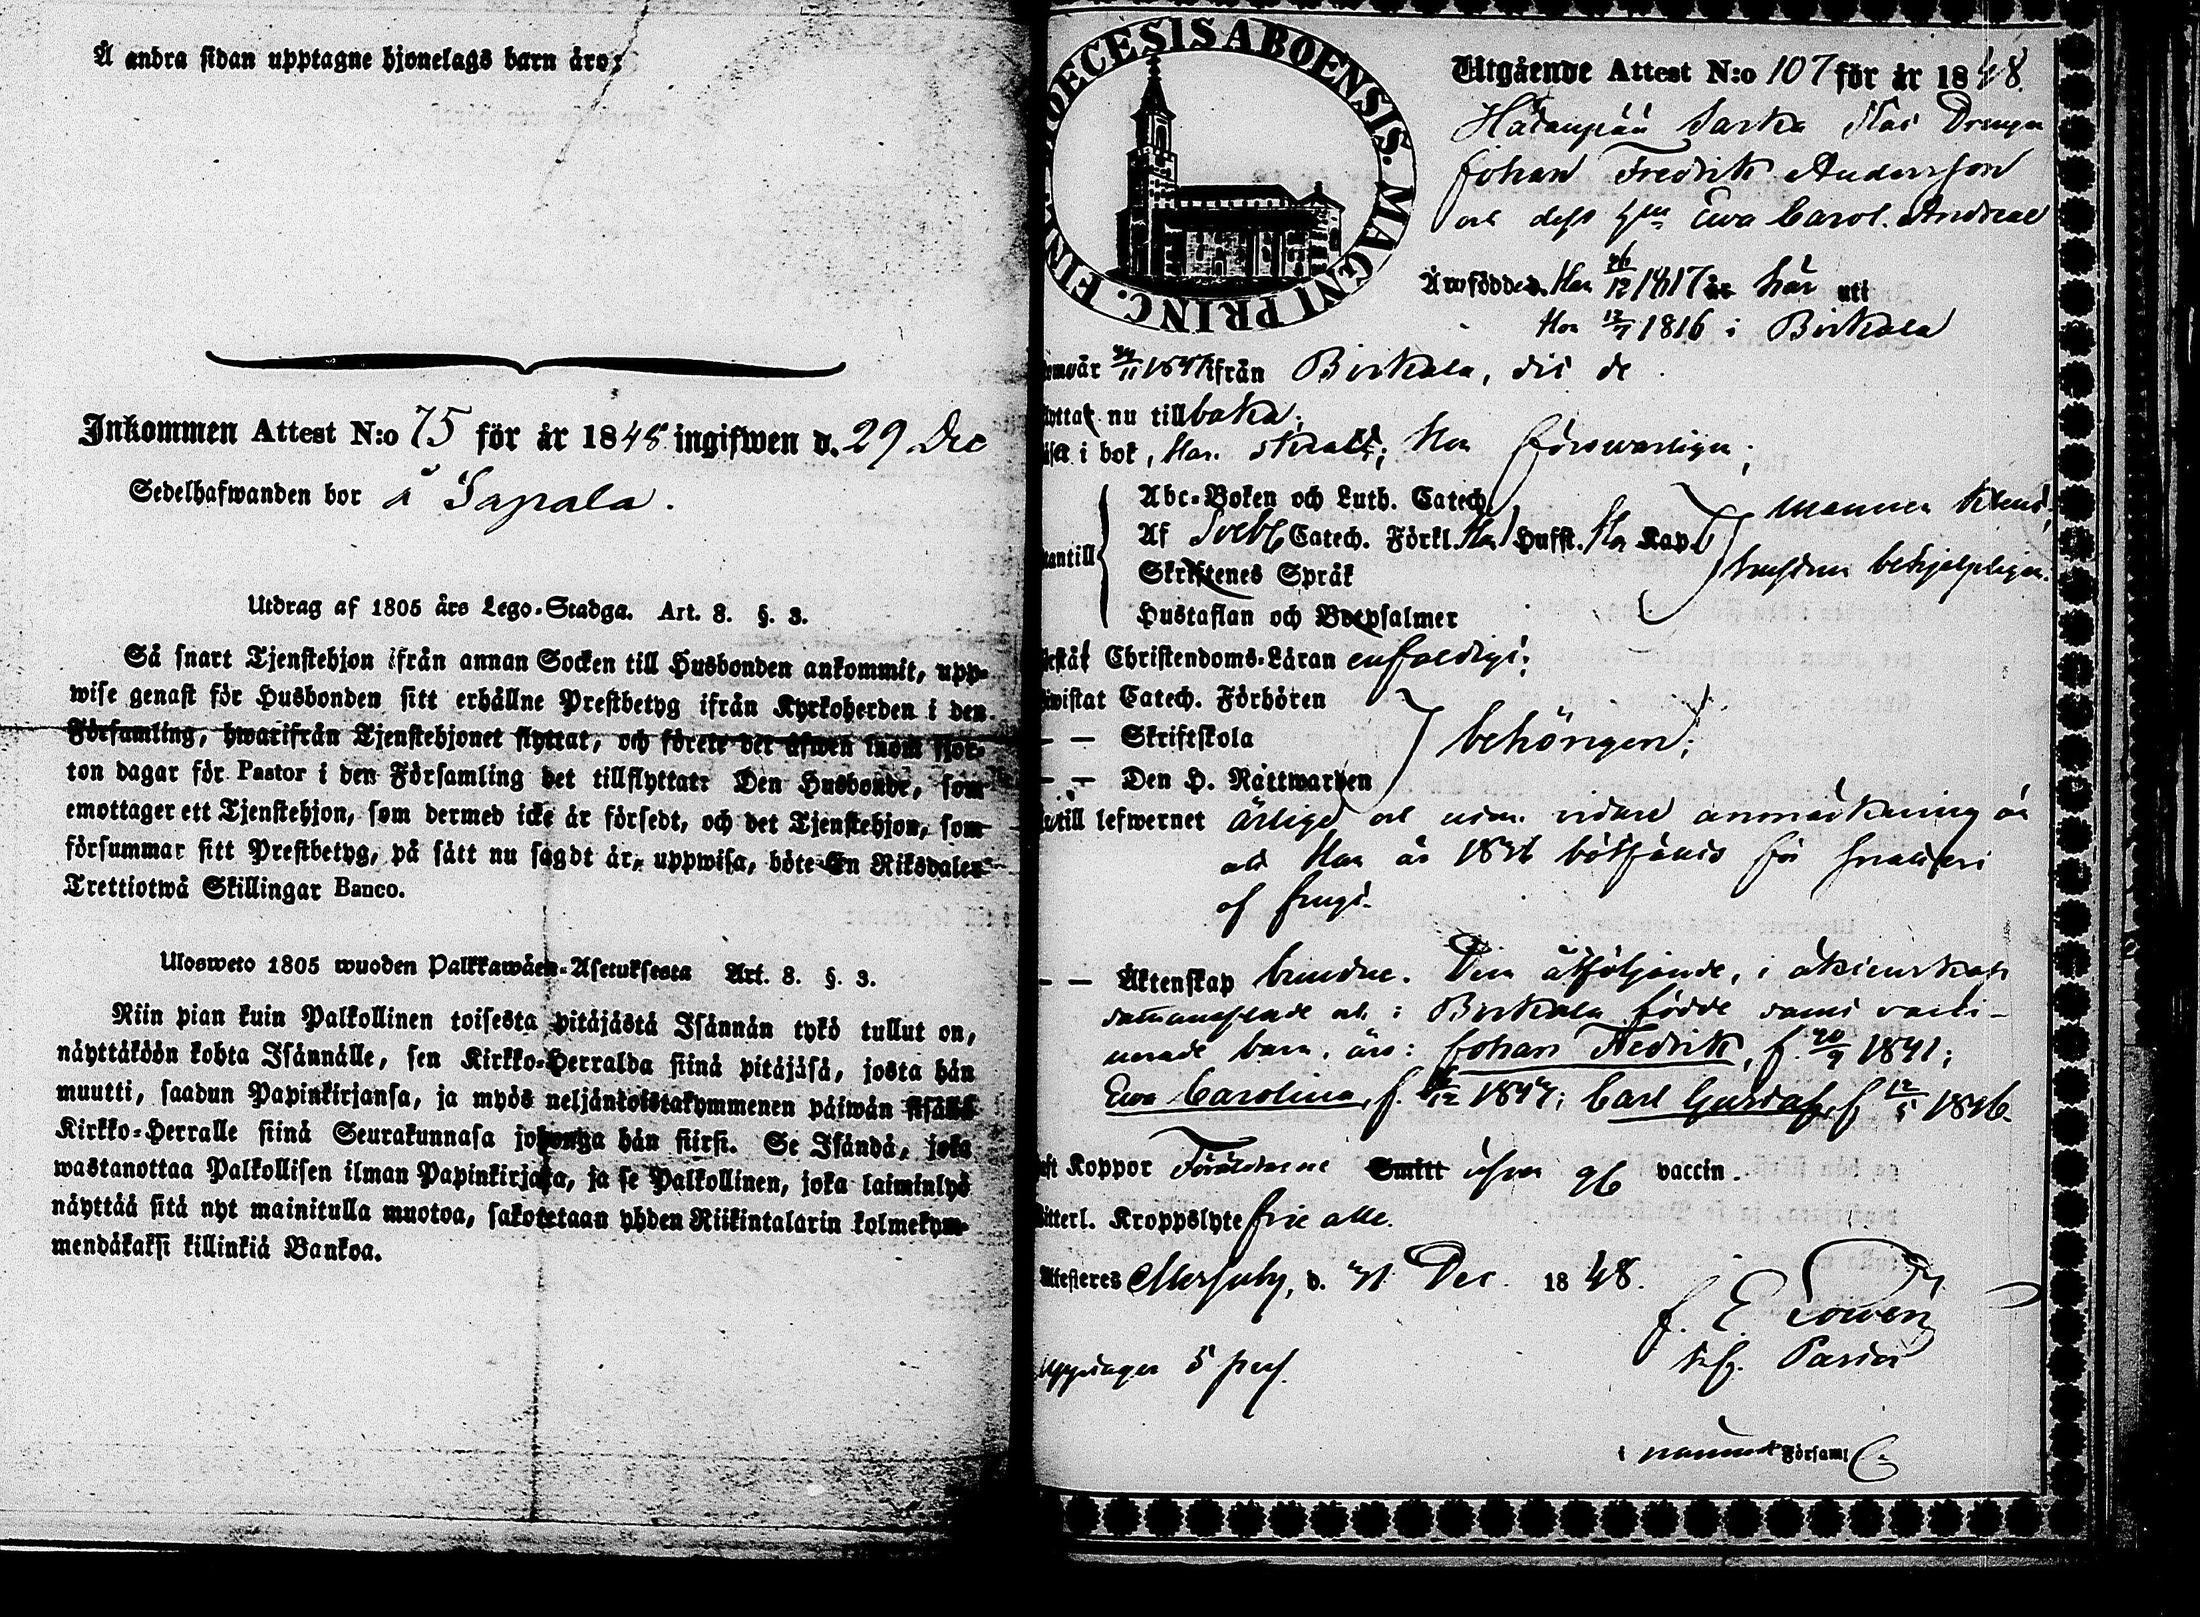 Å andra sidan upptagne hjonelags barn äro:
Inkommen Attest N:o 75 för år 1848 ingifwen d. 29 Dec
Sedelhafwanden bor å Sapala.
Utdrag af 1805 års Lego-Stadga. Art. 8. §. 3.
Så snart Tjenstehjon ifrån annan Socken till Husbonden ankommit, upp-
wise genast för Husbonden sitt erhållne Prestbetyg ifrån Kyrkoherden i den
Församling, hwarifrån Tjenstehjonet flyttat, och förete det äfwen inom fjor-
ton dagar för Pastor i den Församling det tillflyttat: Den Husbonde, som
emottager ett Tjenstehjon, som dermed icke är försedt, och det Tjenstehjon, som
försummar sitt Prestbetyg, på sätt nu sagdt är, uppwisa, böte En Riksdaler
Trettiotwå Skillingar Banco.
Ulosweto 1805 wuoden Palkkawäen-Asetuksesta Art. 8. §. 3.
Niin pian kuin Palkollinen toisesta pitäjästä Isännän tykö tullut on,
näyttäköön kohta Isännälle, sen Kirkko-Herralda siinä pitäjäsä, josta hän
muutti, saadun Papinkirjansa, ja myös neljäntoistakymmenen päiwän sisällä
Kirkko-Herralle siinä Seurakunnasa johonga hän siirsi. Se Isändä, joka
wastanottaa Palkollisen ilman Papinkirjata, ja se Palkollinen, joka laiminlyö
näyttää sitä nyt mainitulla muotoa, sakotetaan yhden Riikintalarin kolmekym-
mendäkaksi killinkiä Bankoa.
DIOECESIS ABOENSIS. MAGNI PRINC. FINL.
Utgående Attest N:o 107 för år 1848.
Sarka Drengen
Johan Fredrik Andersson
och dess Ewa Carol. Andreae
Äro födde, Han 26/12 1817 här uti
Hon 12/7 1816 i Birkala
från Birkala, dit de
nu tillbaka;
i bok, Han Hon förswarligen;
Abc-Boken och Luth. Catech.
Af Svebl Catech. Förkl. Hufst. Kap
Skriftenes Språk
Hustaflan och Botpsalmer
mannen
hustrun behjelpligen.
Christendoms-Läran enfaldigt;
Catech. Förhören
— — Skriftskola
— — Den H. Nattwarden
behörigen;
till lefwernet ärlige och utan vidare anmärkning än
att Han år 1846 för
af
— — Äktenskap bundne. Dem åtföljande, i äktenskap
sammanaflade och i Birkala födde samt vacci-
nerade barn, äro: Johan Fredrik, f. 20/9 1841;
Ewa Carolina, f. 1844; Carl Gustaf, f. 12/5 1846.
Koppor Föräldrarne Smitt vaccin.
Kroppslyte frie alle.
Attesteres Messuby, d. 21 Dec. 1848.
Upptager 5 pers.
Församl